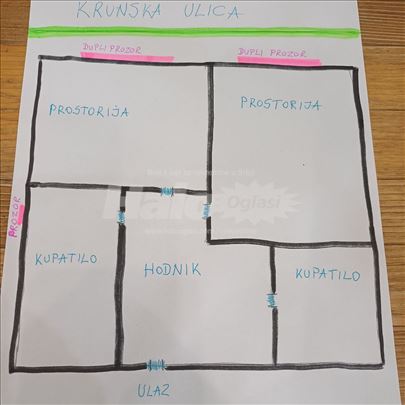 KRUNSKA ULICA
DUPLI PROZOR
DUPLI PROZOR
PROSTORIJA
PROSTORIJA
Halo
Oglasi
PROZOR
KUPATILO
HODNIK
KUPATILO
ULAZ